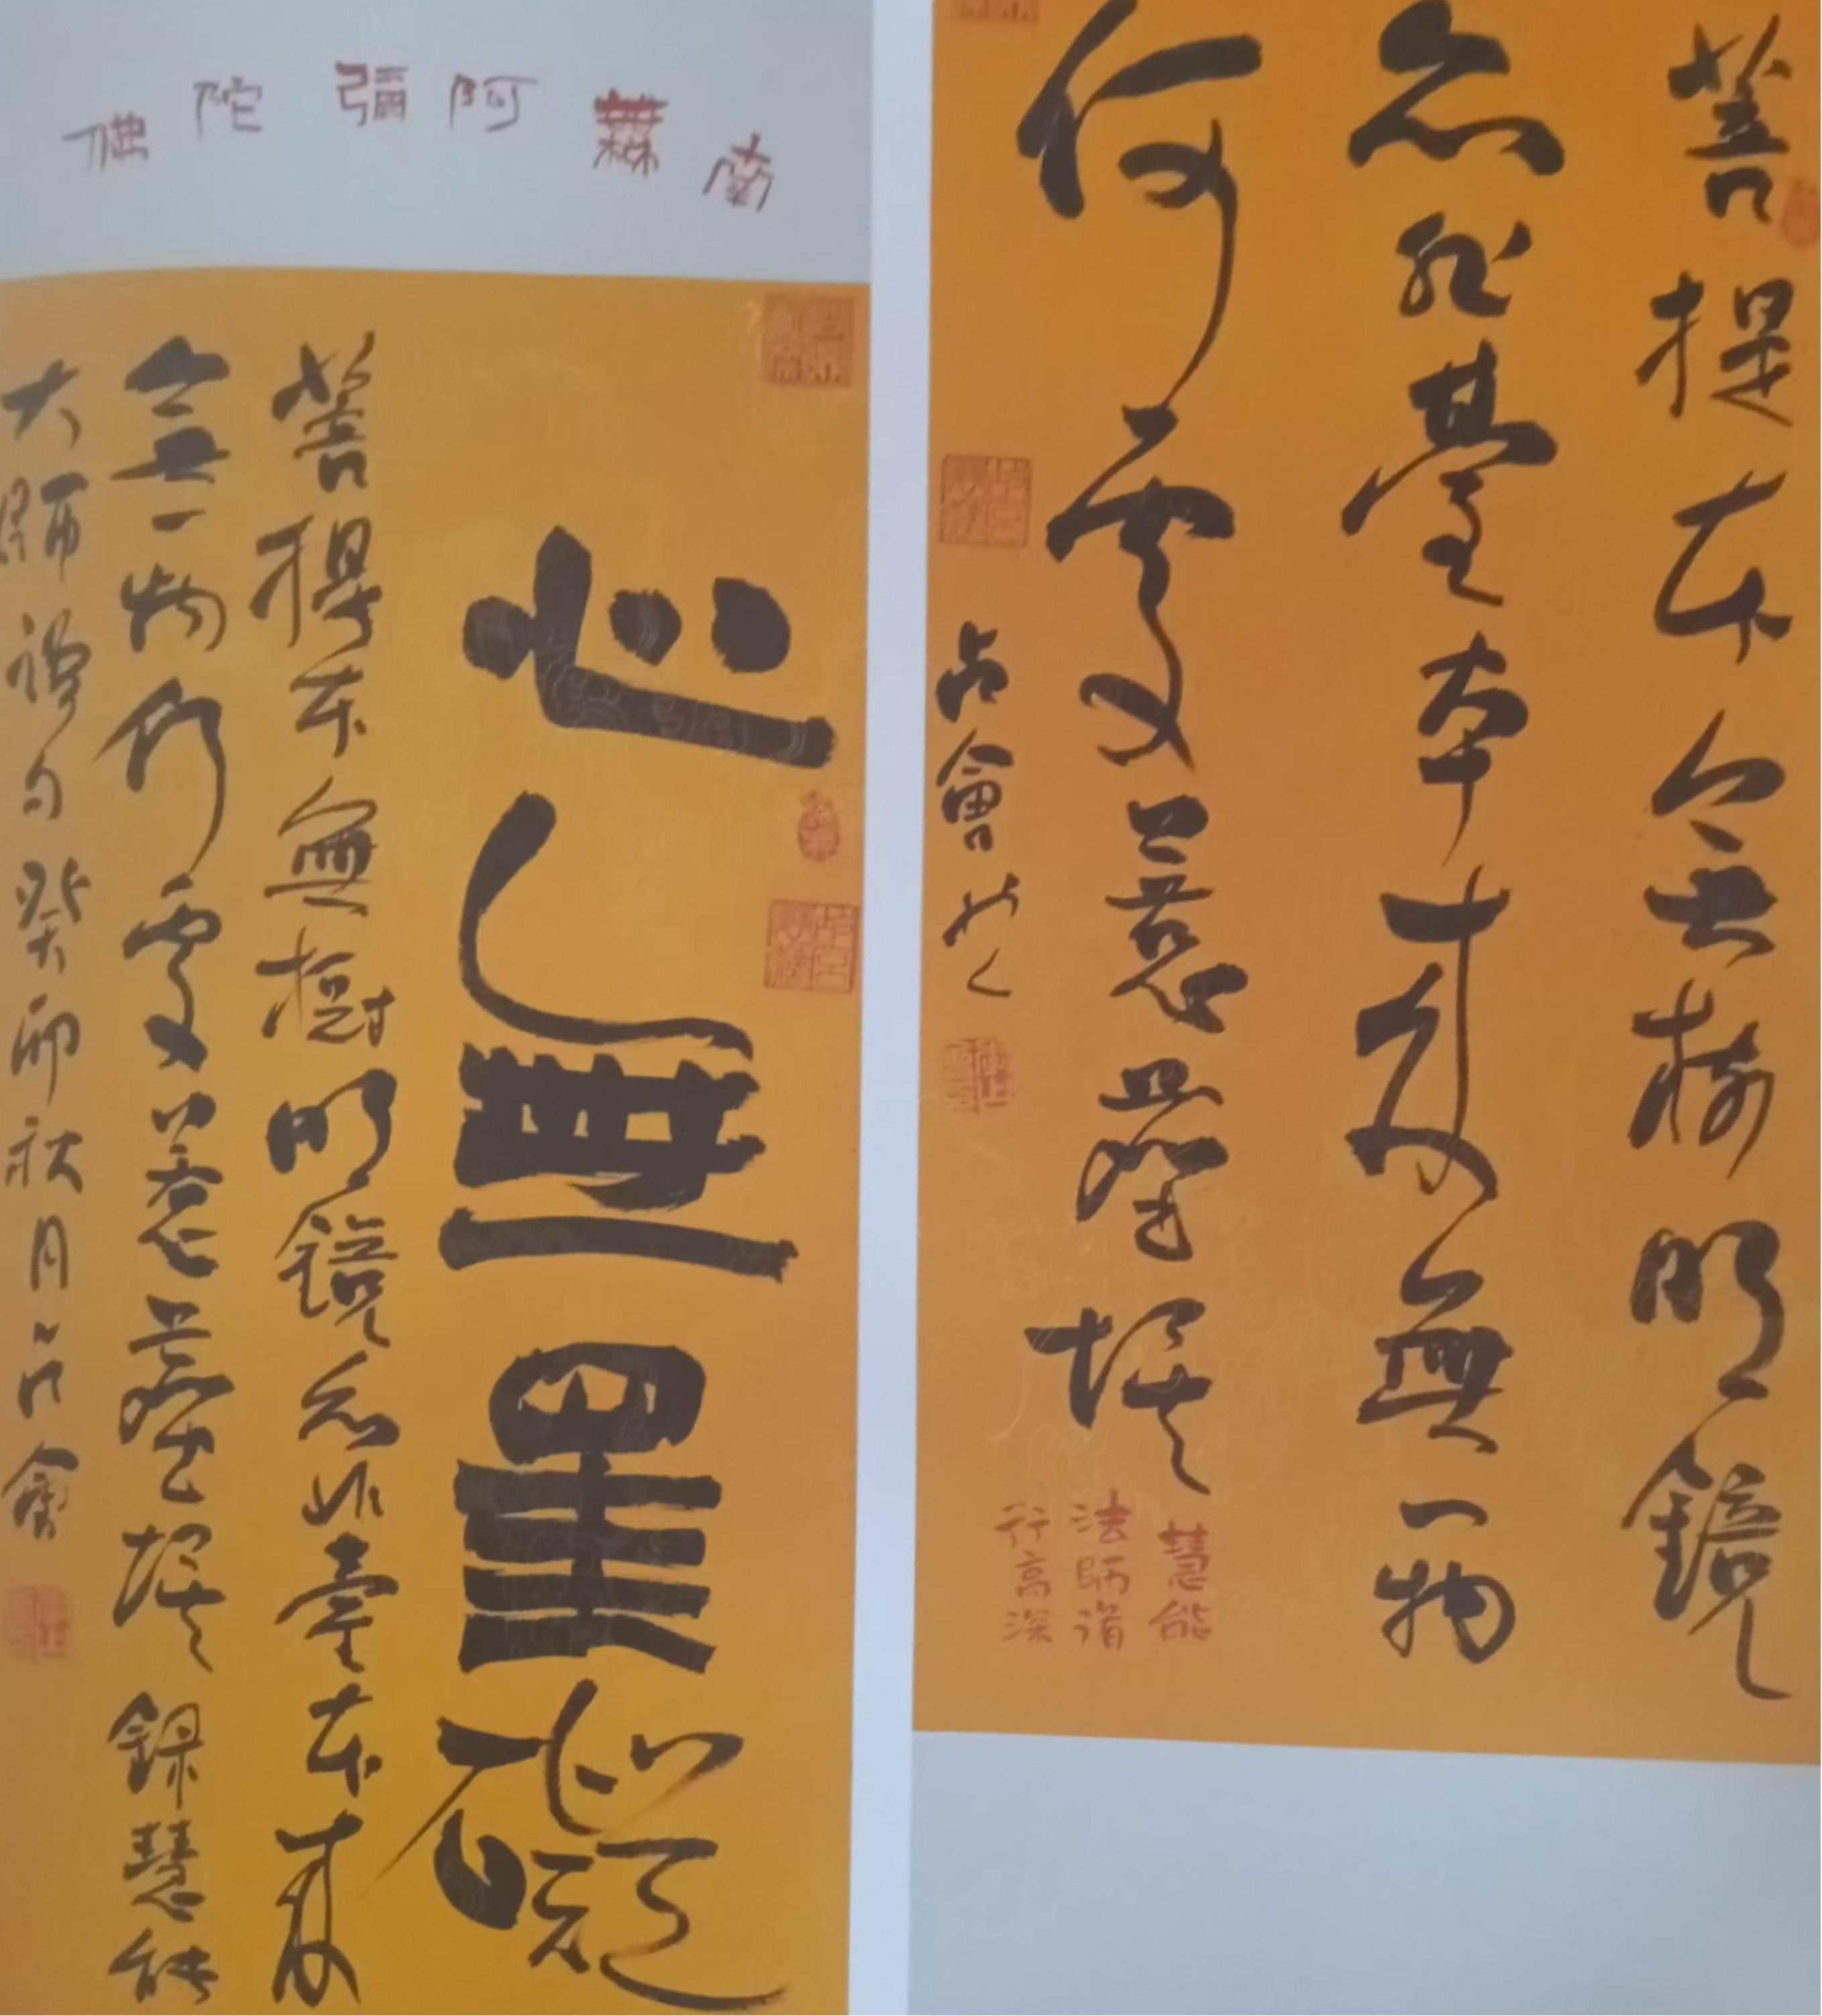 菩提本無樹明鏡
亦非臺本來無一物
何處惹塵埃
占會
慧能
法師道
行高深
南無阿彌陀佛
心無罣礙
菩提本無樹明鏡亦非臺本來
無一物何處惹塵埃錄慧能
大師禪句癸卯秋月占會